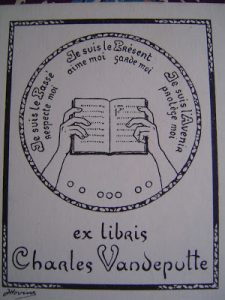 Je suis le Passé
respecte moi
Je suis le Présent
aime moi garde moi
Je suis l'Avenir
protège moi
ex libris
Charles Vandeputte